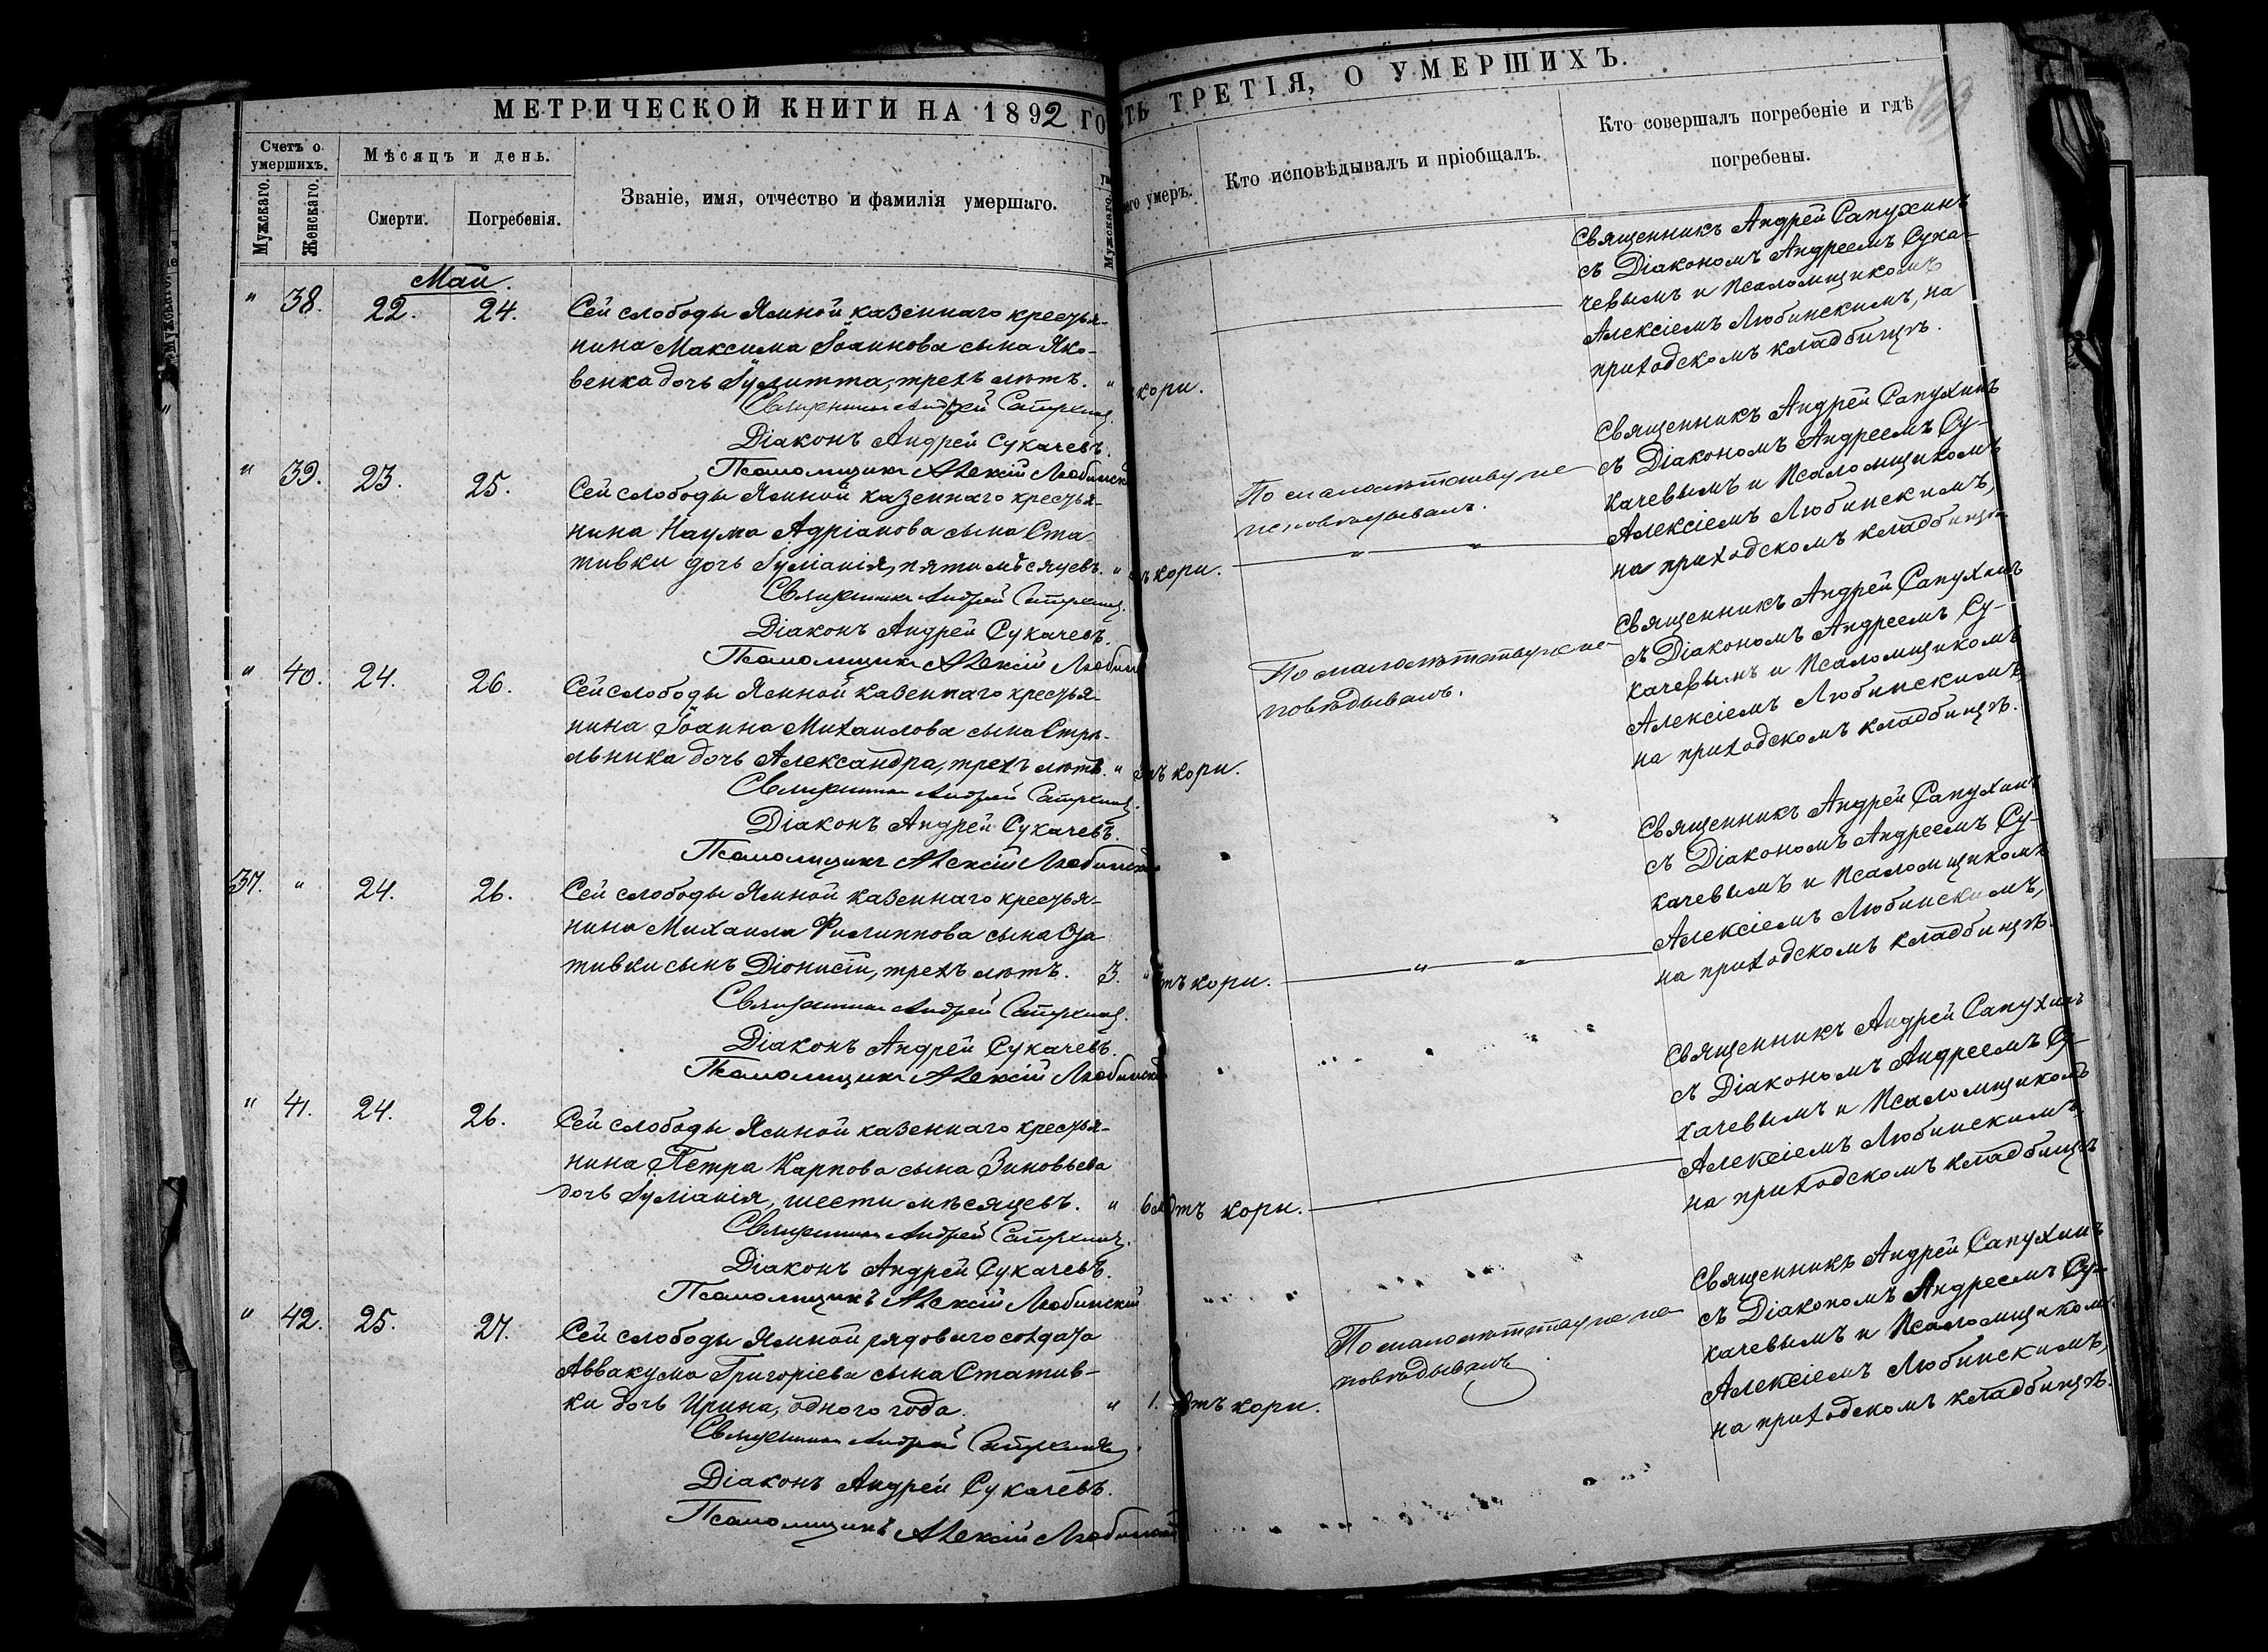 МЕТРИЧЕСКОЙ КНИГИ НА 1892 ГО
Счетъ о умершихъ.
Мужскаго.
Женскаго.
Мѣсяцъ и день.
Смерти.
Погребенія.
Званіе, имя, отчество и фамилія умершаго.
Мужскаго.
Май.
" 38. 22. 24.
Сей слободы Ямной казеннаго крестья-
нина Максима Іоаннова сына Яко-
венка дочь Іулитта, трехъ лѣтъ. "
Священникъ Андрей Сапухинъ.
Діаконъ Андрей Сукачевъ.
Псаломщикъ Алексій Любинскій
" 39. 23. 25.
Сей слободы Ямной казеннаго крестья-
нина Наума Адріанова сына Ста-
тивки дочь Іуліанія, пяти мѣсяцевъ. "
Священникъ Андрей Сапухинъ.
Діаконъ Андрей Сукачевъ.
Псаломщикъ Алексій Любинс
" 40. 24. 26.
Сей слободы Ямной казеннаго крестья-
нина Іоанна Михаилова сына Стрѣ-
льника дочь Александра, трехъ лѣтъ. "
Священникъ Андрей Сапухинъ.
Діаконъ Андрей Сукачевъ.
Псаломщикъ Алексій Любинскій
37. " 24. 26.
Сей слободы Ямной казеннаго крестья-
нина Михаила Филиппова сына Ста
тивки сынъ Діонисій, трехъ лѣтъ. 3. "
Священникъ Андрей Сапухинъ.
Діаконъ Андрей Сукачевъ.
Псаломщикъ Алексій Любинскій
" 41. 24. 26.
Сей слободы Ямной казеннаго крестья-
нина Петра Карпова сына Зиновьева
дочь Іуліанія, шести мѣсяцевъ. " 6 м
Священникъ Андрей Сапухинъ.
Діаконъ Андрей Сукачевъ.
Псаломщикъ Алексій Любинскій
" 42. 25. 27.
Сей слободы Ямной рядоваго солдата
Аввакума Григоріева сына Статив-
ки дочь Ирина, одного года. " 1.
Священникъ Андрей Сапухинъ.
Діаконъ Андрей Сукачевъ.
Псаломщикъ Алексій Любинскій
ТЬ ТРЕТІЯ, О УМЕРШИХЪ.
его умеръ.
Кто исповѣдывалъ и пріобщалъ.
Кто совершалъ погребеніе и гдѣ
погребены.
кори.
Священникъ Андрей Сапухинъ
съ Діакономъ Андреемъ Сука-
чевымъ и Псаломщикомъ
Алексіемъ Любинскимъ, на
приходскомъ кладбищѣ.
ъ кори.
По малолѣтству не
исповѣдывалъ.
" "
Священникъ Андрей Сапухинъ
съ Діакономъ Андреемъ Су-
качевымъ и Псаломщикомъ
Алексіемъ Любинскимъ,
на приходскомъ кладбищѣ
тъ кори.
По малолѣтству не ис-
повѣдывалъ.
Священникъ Андрей Сапухинъ
съ Діакономъ Андреемъ Су-
качевымъ и Псаломщикомъ
Алексіемъ Любинскимъ,
на приходскомъ кладбищѣ.
тъ кори.
" "
Священникъ Андрей Сапухинъ
съ Діакономъ Андреемъ Су-
качевымъ и Псаломщикомъ
Алексіемъ Любинскимъ,
на приходскомъ кладбищѣ.
Отъ кори.
Священникъ Андрей Сапухинъ
съ Діакономъ Андреемъ Су-
качевымъ и Псаломщикомъ
Алексіемъ Любинскимъ,
на приходскомъ кладбищѣ
Отъ кори.
По малолѣтству не ис-
повѣдывалъ.
Священникъ Андрей Сапухинъ
съ Діакономъ Андреемъ Су-
качевымъ и Псаломщикомъ
Алексіемъ Любинскимъ,
на приходскомъ кладбищѣ.